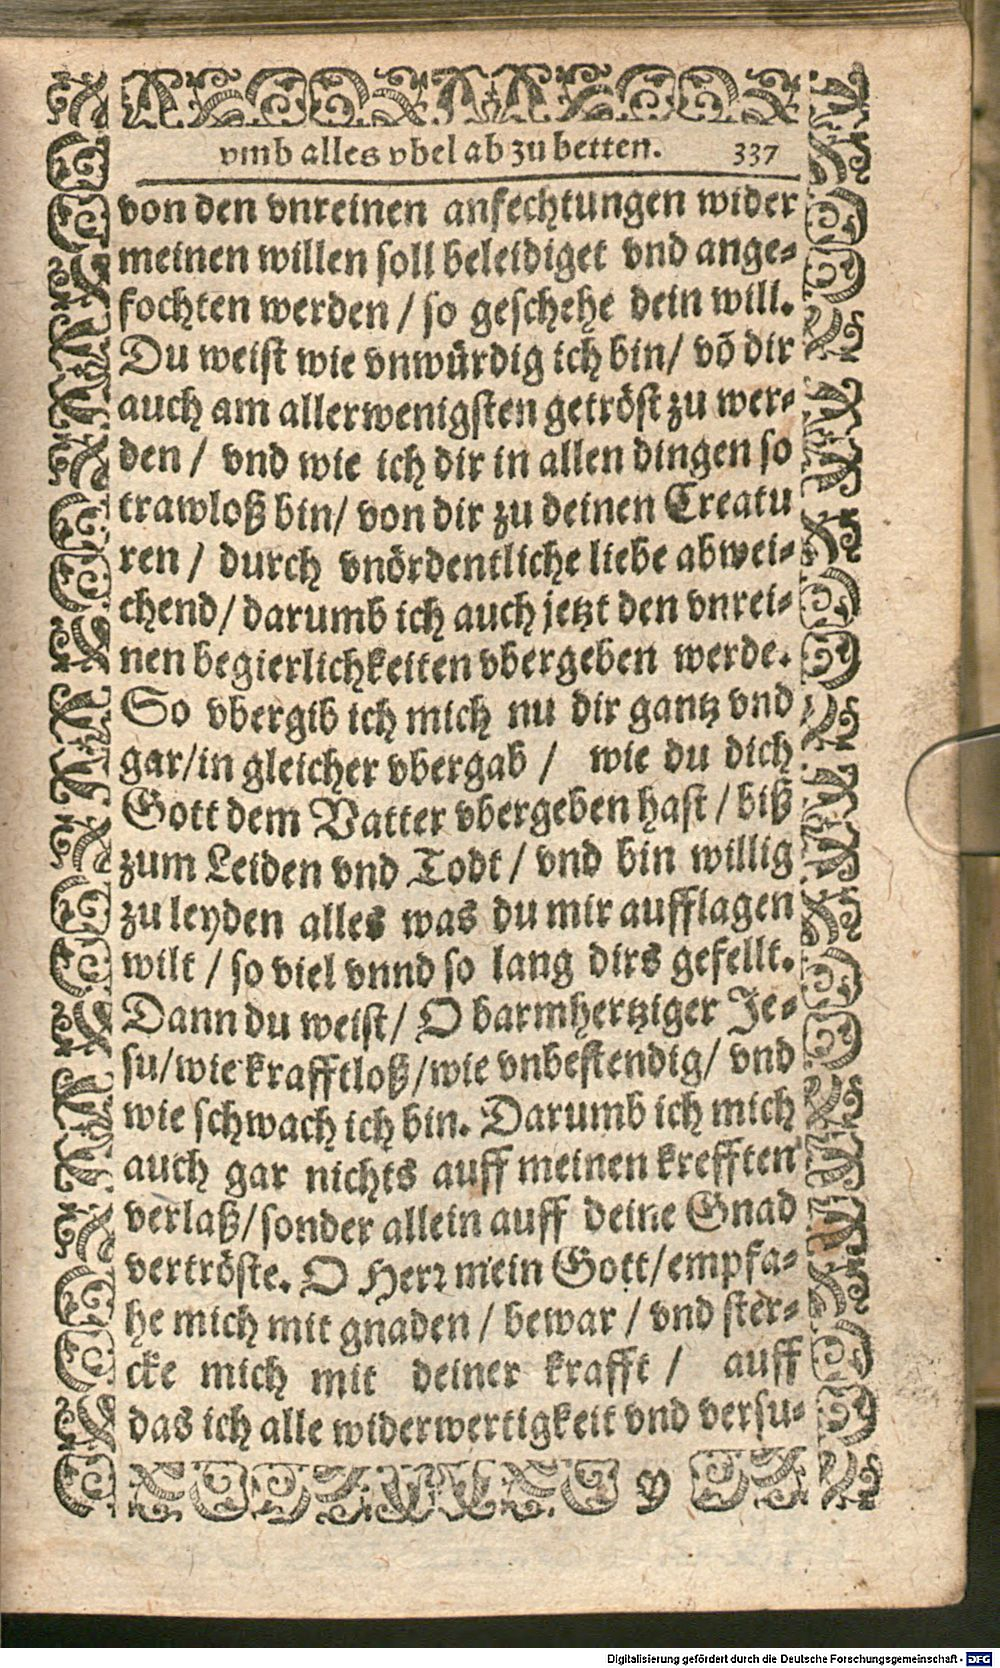 vmb alles vbel ab zu betten. 337
von den vnreinen anfechtungen wider
meinen willen soll beleidiget vnd ange-
fochten werden / so geschehe dein will.
Du weist wie vnwürdig ich bin/ vō dir
auch am allerwenigsten getröst zu wer-
den / vnd wie ich dir in allen dingen so
trawloß bin/ von dir zu deinen Creatu
ren / durch vnördentliche liebe abwei-
chend/ darumb ich auch jetzt den vnrei-
nen begierlichkeiten vbergeben werde.
So vbergib ich mich nu dir gantz vnd
gar/in gleicher vbergab / wie du dich
Gott dem Vatter vbergeben hast / biß
zum Leiden vnd Todt / vnd bin willig
zu leyden alles was du mir aufflagen
wilt / so viel vnnd so lang dirs gefellt.
Dann du weist/ O barmhertziger Je-
su/wie krafftloß/wie vnbestendig/ vnd
wie schwach ich bin. Darumb ich mich
auch gar nichts auff meinen krefften
verlaß/sonder allein auff deine Gnad
vertröste. O Herr mein Gott/empfa-
he mich mit gnaden / bewar / vnd ster-
cke mich mit deiner krafft / auff
das ich alle widerwertigkeit vnd versu-
y
Digitalisierung gefördert durch die Deutsche Forschungsgemeinschaft - DFG